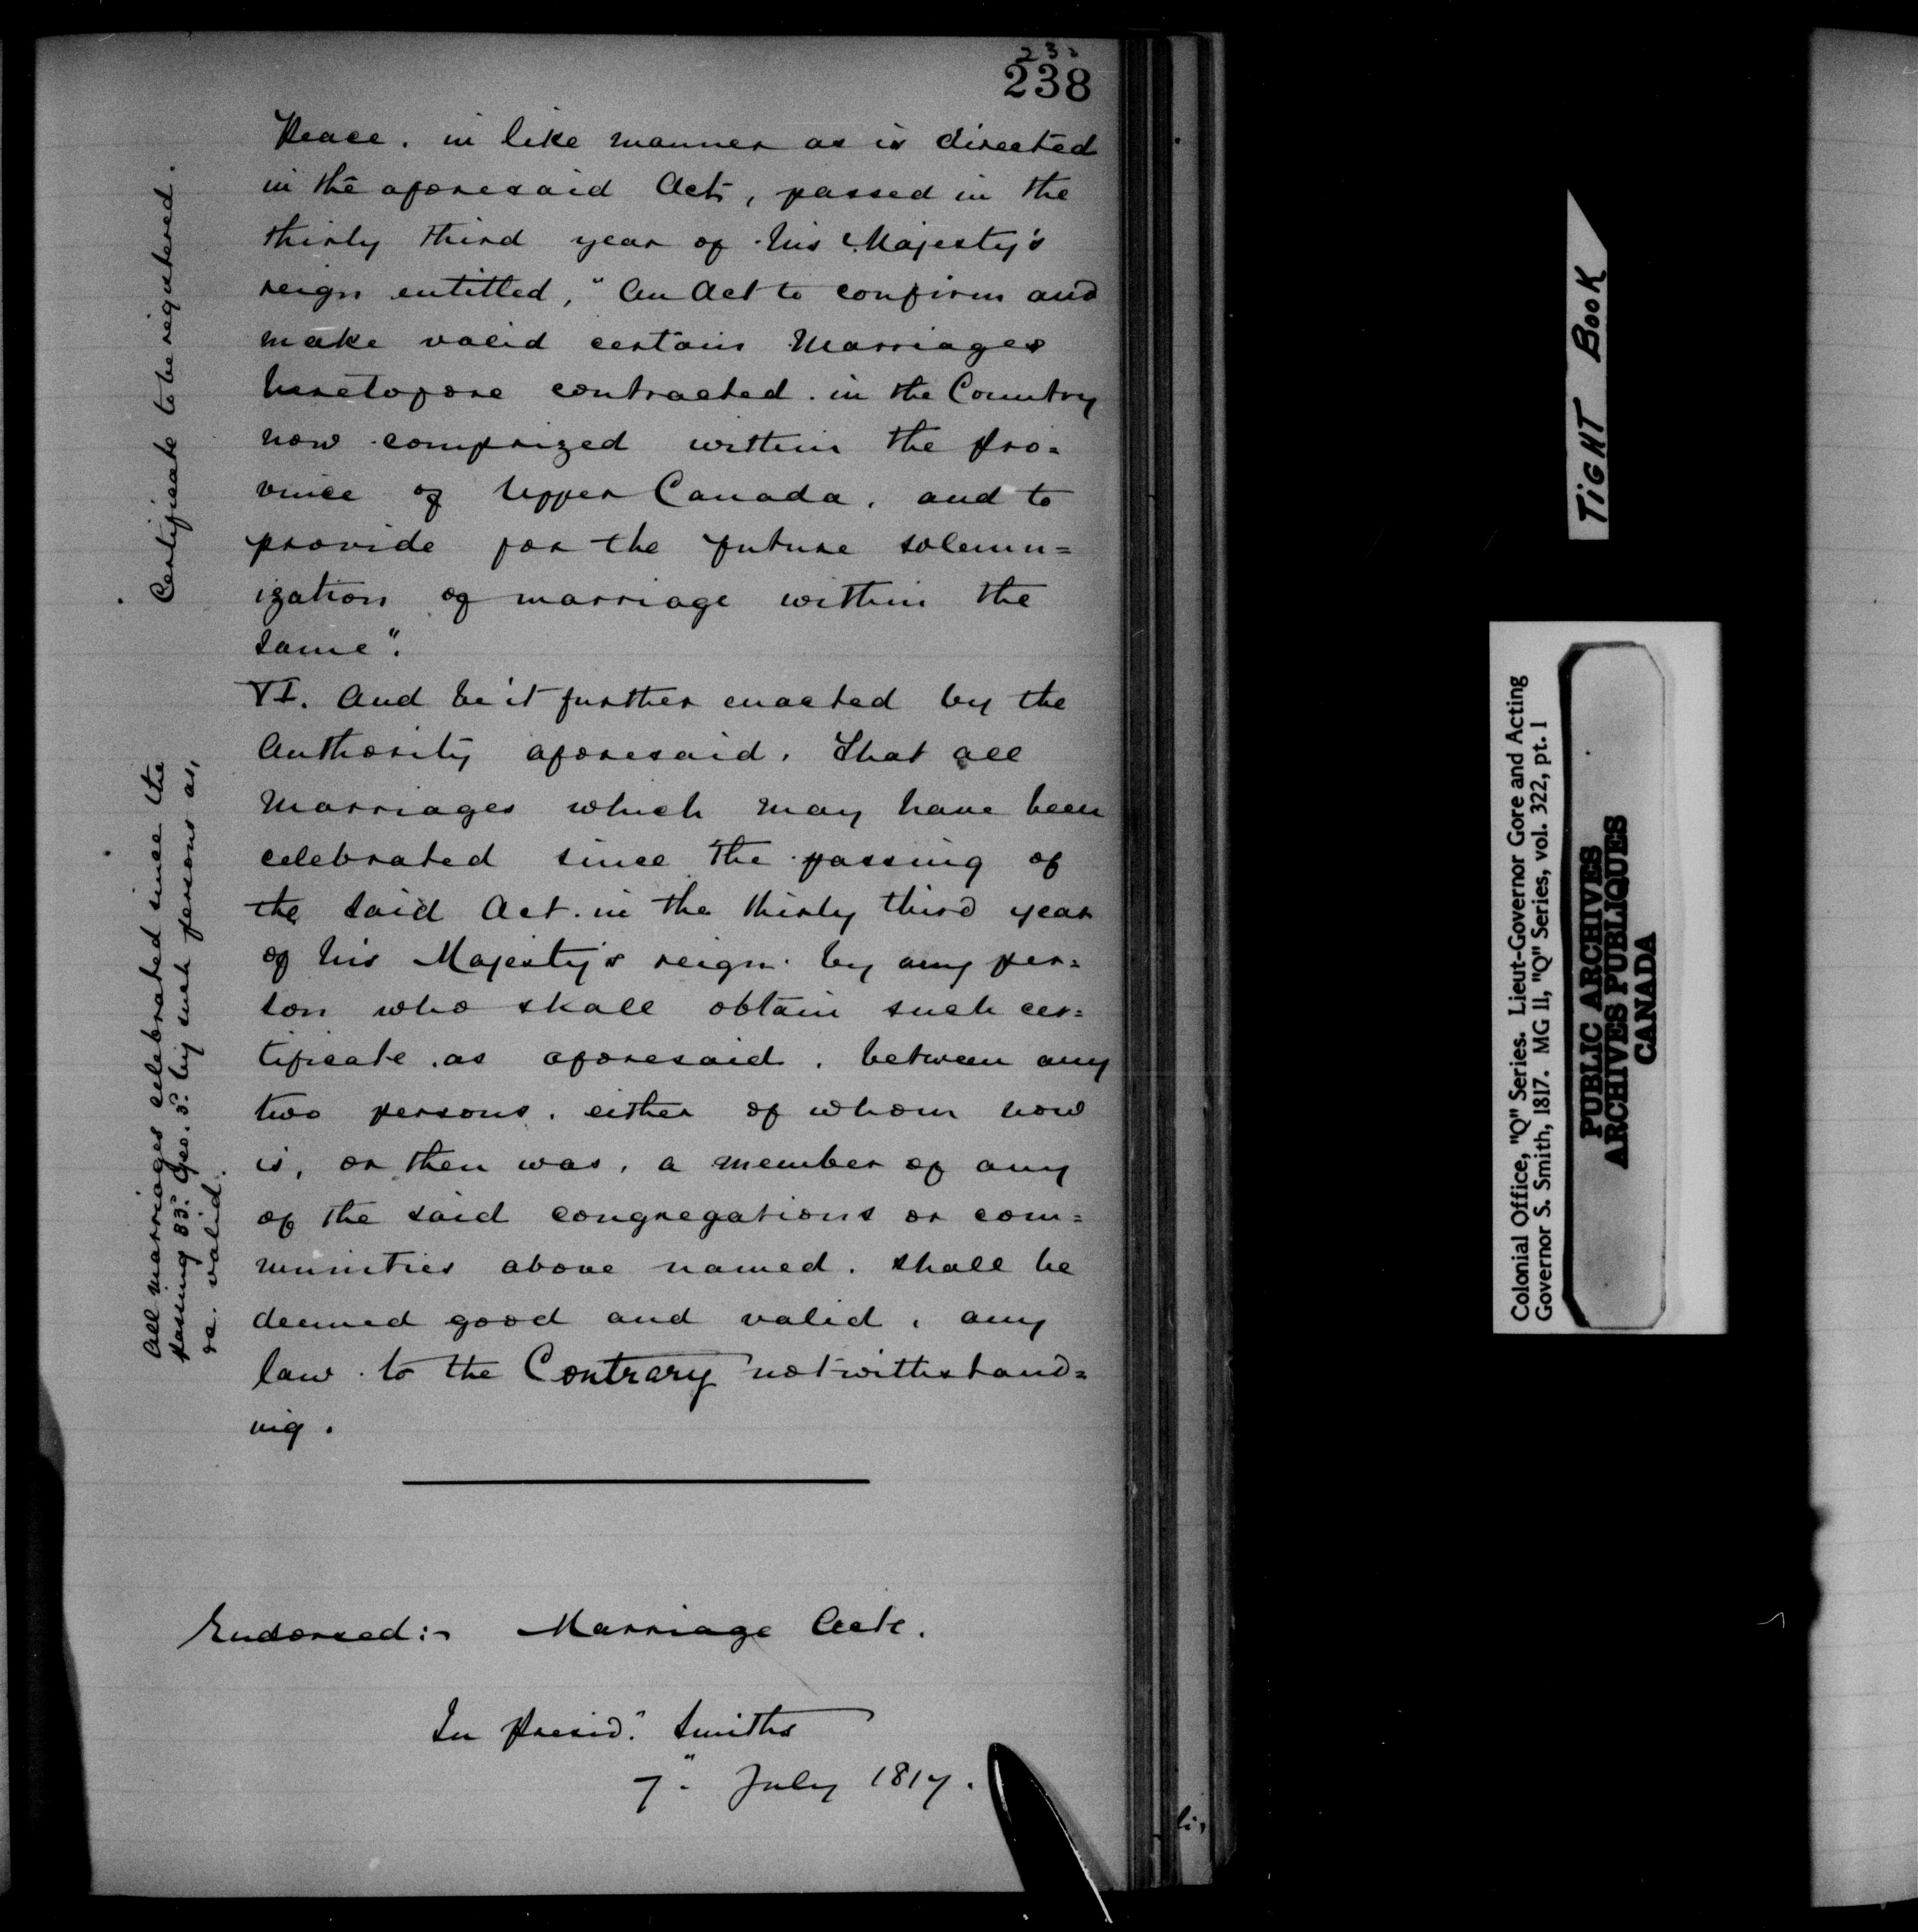 238
Peace. in like manner as is directed
in the aforesaid Act, passed in the
thirty third year of his Majesty's
reign entitled, "An Act to confirm and
make valid certain Marriages
heretofore contracted. in the Country
now comprized within the Pro=
vince of Upper Canada, and to
provide for the future solemn=
ization of marriage within the
same".
VI. And be it further enacted by the
Authority aforesaid. That all
Marriages which may have been
celebrated since the passing of
the said Act. in the thirty third year
of his Majesty's reign. by any per=
son who shall obtain such cer=
tificate. as aforesaid. between any
two persons. either of whom now
is, or then was, a member of any
of the said congregations or com=
munities above named. shall be
deemed good and valid, any
law. to the Contrary notwithstand=
ing.
Certificate to be registered.
All marriages celebrated since the
passing 33d. Geo. 3d. by such persons as,
&a. valid.
Endorsed:- Marriage Acts.
In Presid.t Smiths
7" July 1817.
TIGHT BOOK
Colonial Office, "Q" Series. Lieut-Governor Gore and Acting
Governor S. Smith, 1817. MG 11, "Q" Series, vol. 322, pt. 1
PUBLIC ARCHIVES
ARCHIVES PUBLIQUES
CANADA